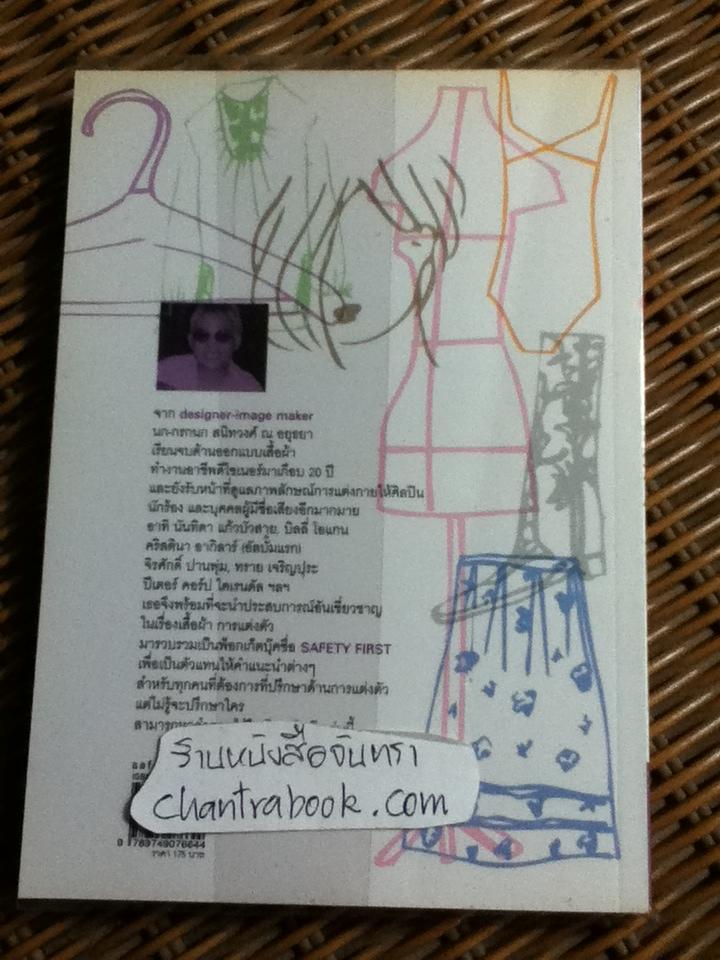 จาก designer-image maker
นก-กรกนก สนิทวงศ์ ณ อยุธยา
เรียนจบด้านออกแบบเสื้อผ้า
ทำงานอาชีพดีไซเนอร์มาเกือบ 20 ปี
และยังรับหน้าที่ดูแลภาพลักษณ์การแต่งกายให้ศิลปิน
นักร้อง และบุคคลผู้มีชื่อเสียงอีกมากมาย
อาทิ นันทิดา แก้วบัวสาย, บิลลี่ โอแกน
คริสติน่า อากิลาร์ (อัลบั้มแรก)
จิรศักดิ์ ปานพุ่ม, ทราย เจริญปุระ
ปีเตอร์ คอร์ป ไดเรนดัล ฯลฯ
เธอจึงพร้อมที่จะนำประสบการณ์อันเชี่ยวชาญ
ในเรื่องเสื้อผ้า การแต่งตัว
มารวบรวมเป็นพ็อกเก็ตบุ๊คชื่อ SAFETY FIRST
เพื่อเป็นตัวแทนให้คำแนะนำต่างๆ
สำหรับทุกคนที่ต้องการที่ปรึกษาด้านการแต่งตัว
แต่ไม่รู้จะปรึกษาใคร
ร้านหนังสือจันทรา
chantrabook.com
9 789749 076644
ราคา 175 บาท